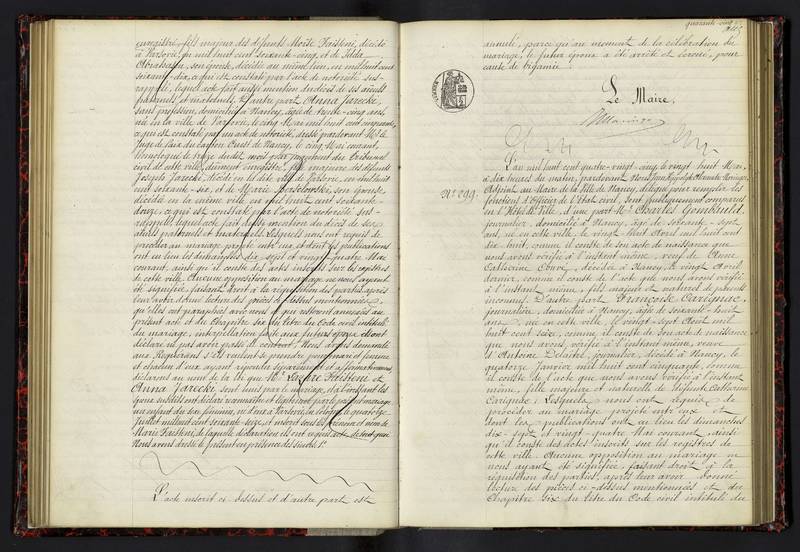 enregistré, fils majeur des défunts Moïse Faistein, décédé
à Varsovie, en mil huit cent soixante-cinq, et de
Abraham, son épouse, décédée au même lieu, en mil huit cent
soixante-dix, ce qui est constaté par l'acte de notoriété sus-
rappelé, lequel acte fait aussi mention du décès de ses aïeuls
paternels et maternels. D'autre part Anna Jarecke,
sans profession, domiciliée à Nancy, âgée de trente-cinq ans,
née en la ville de Varsovie, le cinq Mai mil huit cent cinquante,
ce qui est constaté par un acte de notoriété, dressé pardevant Mr le
Juge de Paix du canton Ouest de Nancy, le cinq Mai courant,
homologué le treize dudit mois par jugement du tribunal
civil de cette ville, dûment enregistré, fille majeure des défunts
Joseph Jarecki, décédé en la dite ville de Varsovie, en mil huit
cent soixante-six, et de Marie, son épouse,
décédée en la même ville en mil huit cent soixante-
douze, ce qui est constaté par l'acte de notoriété sus-
rappelé, lequel acte fait aussi mention du décès de ses
aïeuls paternels et maternels. Lesquels nous ont requis de
procéder au mariage projeté entre eux, et dont les publications
ont eu lieu les dimanches dix-sept et vingt-quatre Mai
courant, ainsi qu'il conste des actes inscrits sur les registres
de cette ville. Aucune opposition au mariage ne nous ayant
été signifiée, faisant droit à la réquisition des parties, après
leur avoir donné lecture des pièces ci-dessus mentionnées,
qu'elles ont paraphées avec nous et qui resteront annexées au
présent acte et du Chapitre six du titre du Code civil intitulé
du mariage, interpellation faite aux futurs époux, ils ont
déclaré ne pas avoir passé de contrat. Nous avons demandé
aux Requérants s'ils veulent se prendre pour mari et femme
et chacun d'eux ayant répondu séparément et affirmativement
déclarons au nom de la loi que Mr Lazare Faistein et
Anna Jarecke sont unis par le mariage, et à l'instant les
époux susdits ont déclaré reconnaître et légitimer par le présent mariage
un enfant du sexe féminin, né d'eux à Varsovie, le quatorze
Juillet mil huit cent soixante-seize, et inscrit sous les prénoms et nom de
Marie Faistein, de laquelle déclaration ils ont requis acte, de tout quoi
Nous avons dressé le présent en présence des sieurs 1°
L'acte inscrit ci-dessus et d'autre part est
quarante-cinq
annulé, parce qu'au moment de la célébration du
mariage, le futur époux a été arrêté et écroué, pour
cause de bigamie.
Le Maire,
No 299.
L'an mil huit cent quatre-vingt-cinq, le vingt huit Mai,
à six heures du matin, pardevant Nous
Adjoint au Maire de la Ville de Nancy, délégué pour remplir les
fonctions d'Officier de l'Etat civil, sont publiquement comparus
en l'Hôtel de Ville, d'une part Mr Charles Gombauld,
journalier, domicilié à Nancy, âgé de soixante-sept
ans, né en cette ville, le vingt-huit Avril mil huit cent
dix-huit, comme il conste de son acte de naissance que
nous avons vérifié à l'instant même, veuf de Anne
Catherine, décédée à Nancy, le vingt Avril
dernier, comme il conste de l'acte que nous avons vérifié
à l'instant même, fils majeur et naturel de parents
inconnus. D'autre part Françoise Carignac,
journalière, domiciliée à Nancy, âgée de soixante-huit
ans, née en cette ville, le vingt-sept Août mil
huit cent seize, comme il conste de son acte de naissance
que nous avons vérifié à l'instant même, veuve
d'Antoine Delaitre, journalier, décédé à Nancy, le
quatorze Janvier mil huit cent cinquante, comme
il conste de l'acte que nous avons vérifié à l'instant
même, fille majeure et naturelle de la défunte Catherine
Carignac. Lesquels nous ont requis de
procéder au mariage projeté entre eux et
dont les publications ont eu lieu les dimanches
dix-sept et vingt-quatre Mai courant, ainsi
qu'il conste des actes inscrits sur les registres de
cette ville. Aucune opposition au mariage ne
nous ayant été signifiée, faisant droit à la
réquisition des parties, après leur avoir donné
lecture des pièces ci-dessus mentionnées et du
Chapitre six du titre du Code civil intitulé du